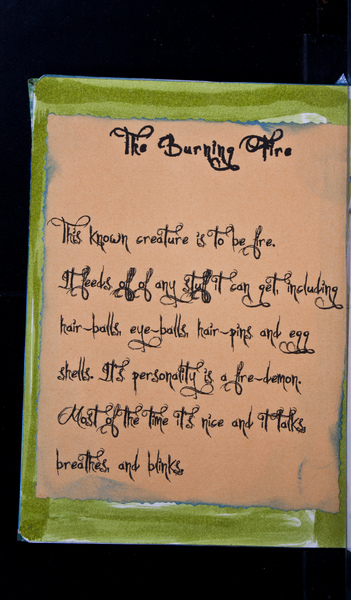 The Burning Fire
This known creature is to be fire.
It feeds of of any stuff it can get, including
hair-balls, eye-balls, hair-pins and egg
shells. It's personality is a fire-demon.
Most of the time it's nice and it talks,
breathes, and blinks.